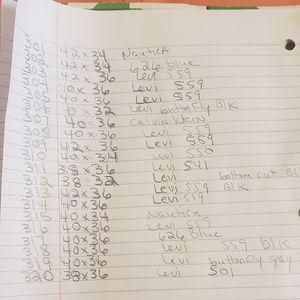 301 42x34 Nautica
302 42x34 626 blue
303 42x36 Levi 559
304 40x36 Levi 559
305 40x36 Levi 559
306 x32 Levi buttonfly Blk
307 40x36 Calvin Klein
308 40x36 Levi 559
309 42x36 Levi 559
310 40x34 Levi 550
311 38x36 Levi 541
312 38 32 Levi bottom cut Bl
313 42x36 Levi 559 Blk
314 40x36 Levi
315 40x34 Nautica
316 40x36 Levi 559
317 40x36 626 blue
318 40x36 Levi 559 blk
319 40x36 Levi buttonfly grey
320 38x36 Levi 501